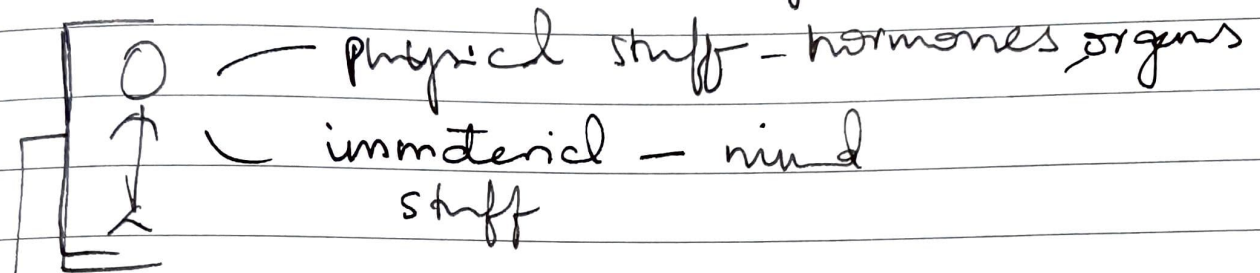 physical stuff - hormones, organs
immaterial - mind
stuff